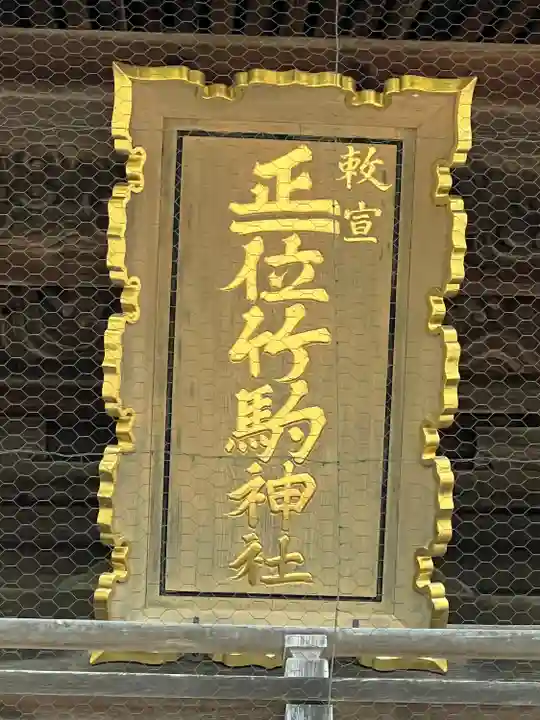 敕宣
正一位竹駒神社